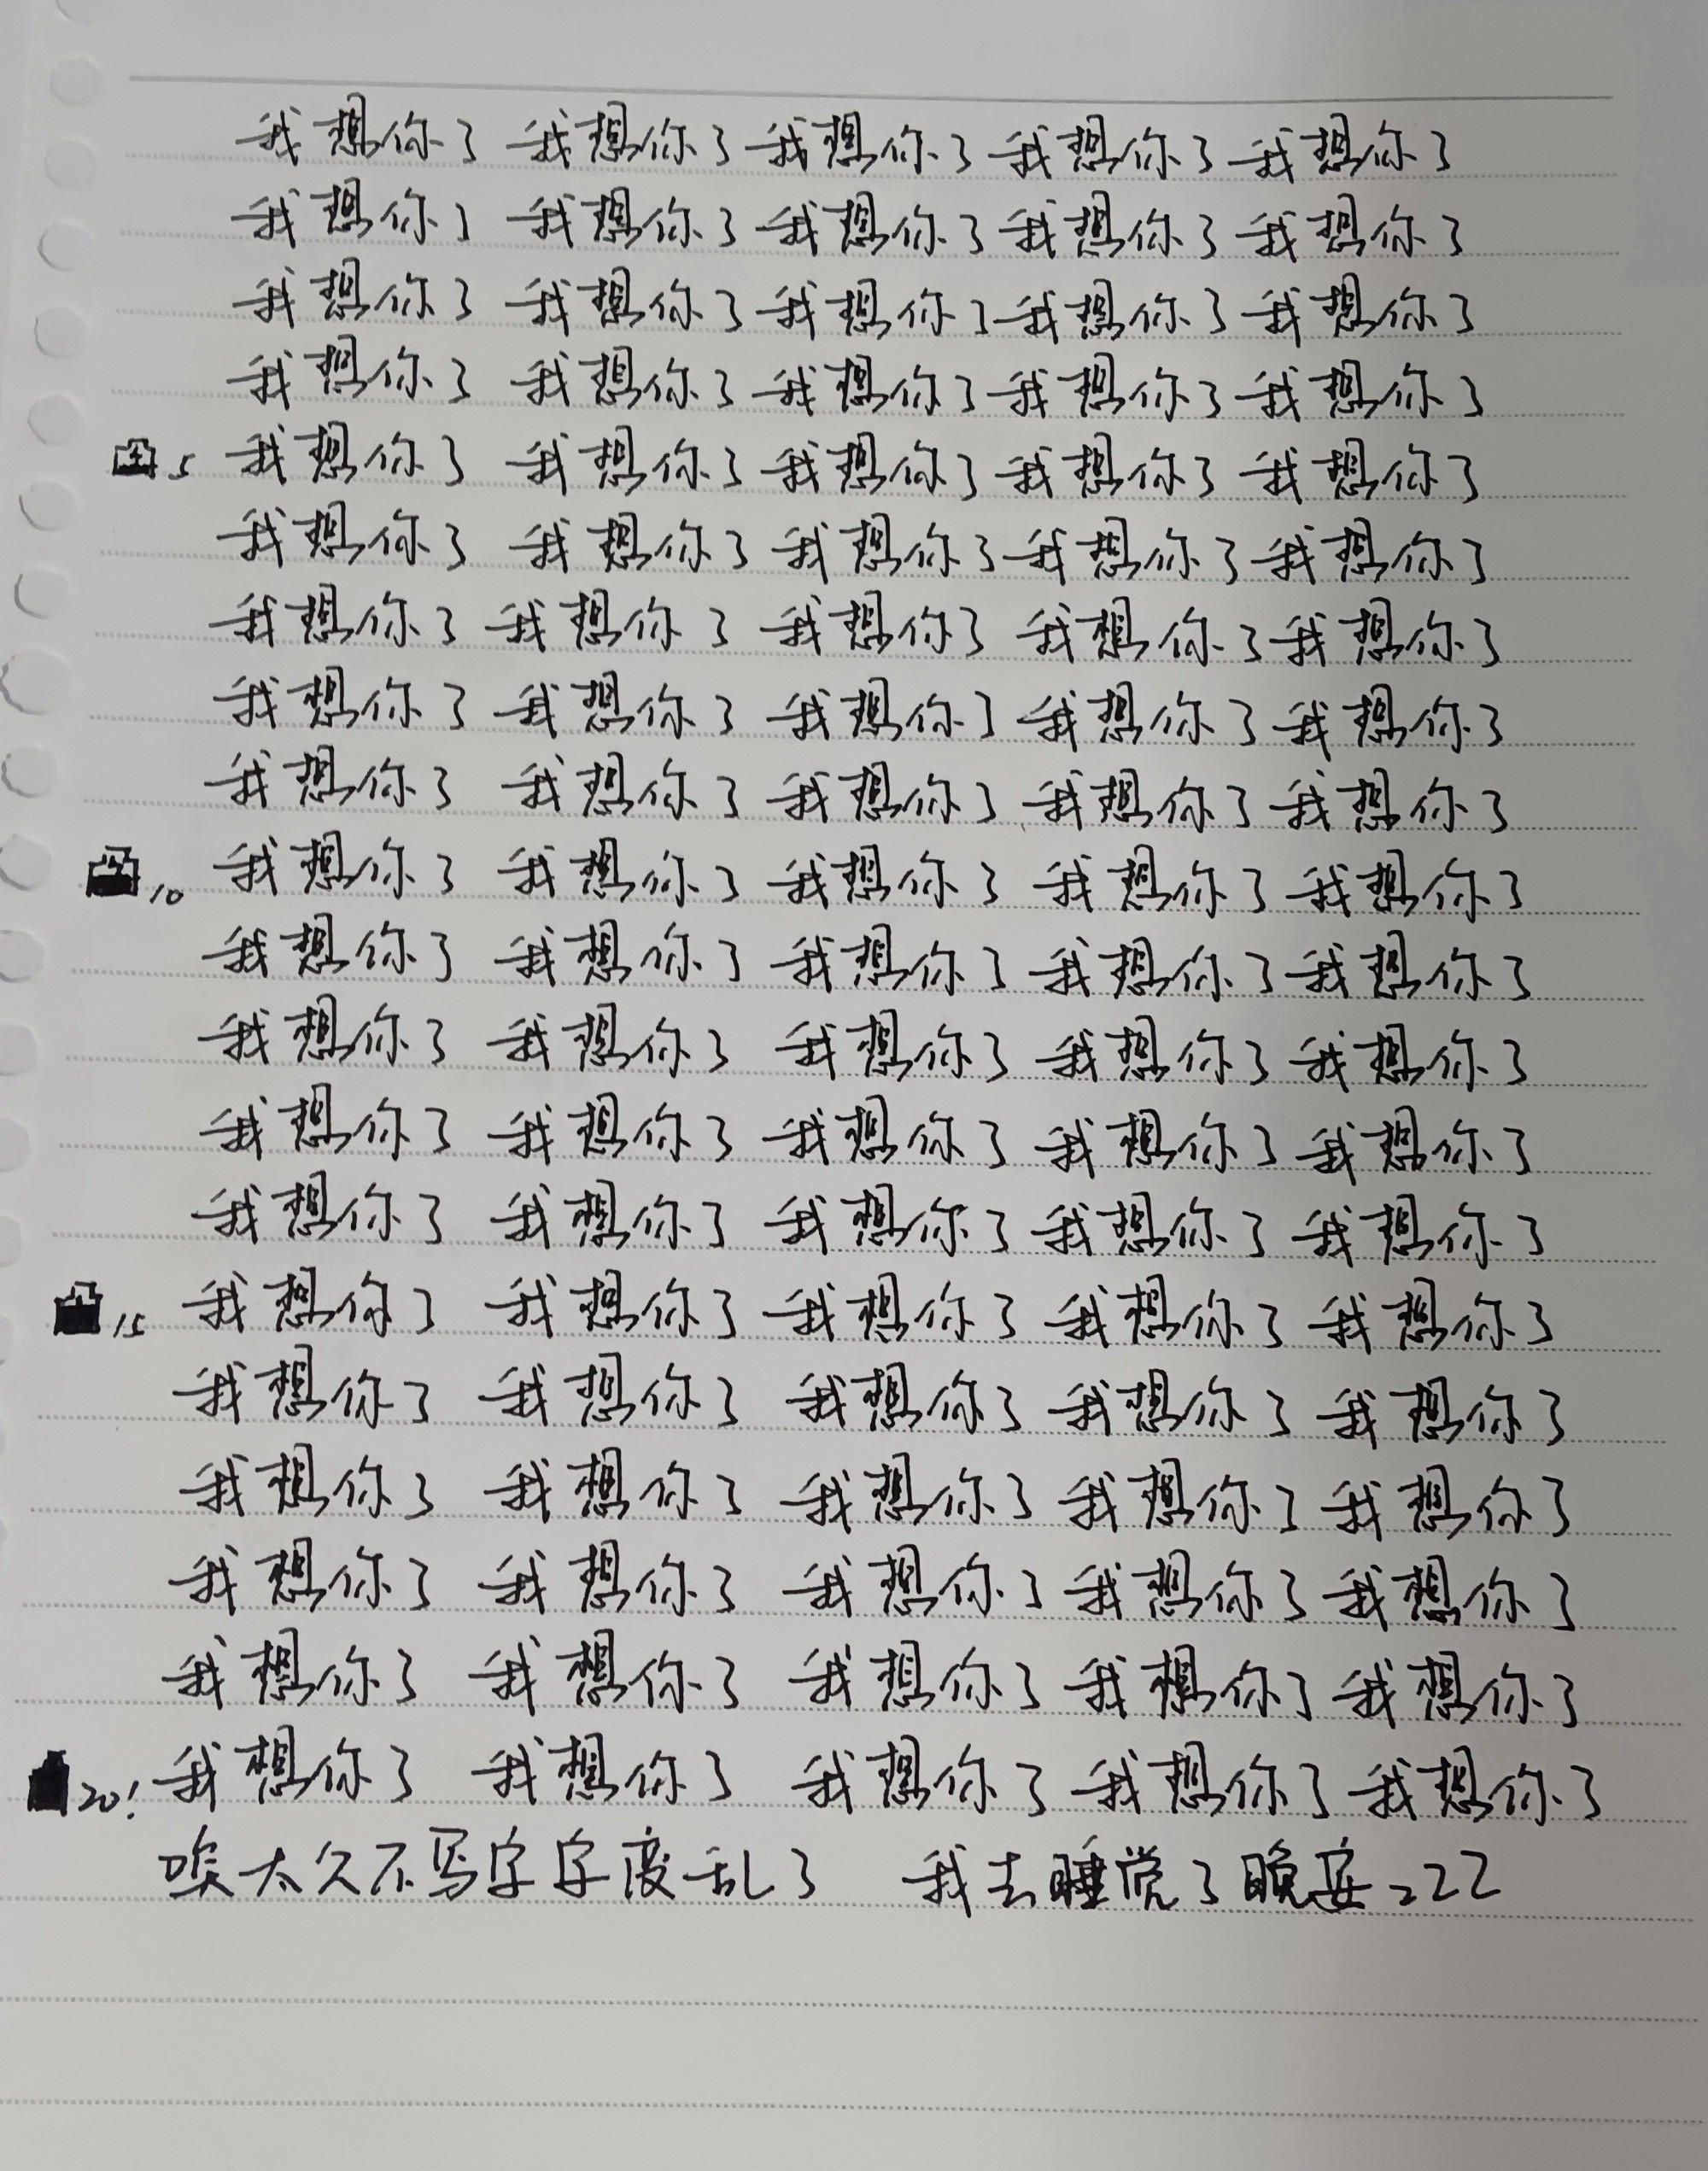 我想你了 我想你了 我想你了 我想你了 我想你了
我想你了 我想你了 我想你了 我想你了 我想你了
我想你了 我想你了 我想你了 我想你了 我想你了
我想你了 我想你了 我想你了 我想你了 我想你了
5 我想你了 我想你了 我想你了 我想你了 我想你了
我想你了 我想你了 我想你了 我想你了 我想你了
我想你了 我想你了 我想你了 我想你了 我想你了
我想你了 我想你了 我想你了 我想你了 我想你了
我想你了 我想你了 我想你了 我想你了 我想你了
10 我想你了 我想你了 我想你了 我想你了 我想你了
我想你了 我想你了 我想你了 我想你了 我想你了
我想你了 我想你了 我想你了 我想你了 我想你了
我想你了 我想你了 我想你了 我想你了 我想你了
我想你了 我想你了 我想你了 我想你了 我想你了
15 我想你了 我想你了 我想你了 我想你了 我想你了
我想你了 我想你了 我想你了 我想你了 我想你了
我想你了 我想你了 我想你了 我想你了 我想你了
我想你了 我想你了 我想你了 我想你了 我想你了
我想你了 我想你了 我想你了 我想你了 我想你了
20! 我想你了 我想你了 我想你了 我想你了 我想你了
唉太久不写字字变乱了 我去睡觉了晚安zzz